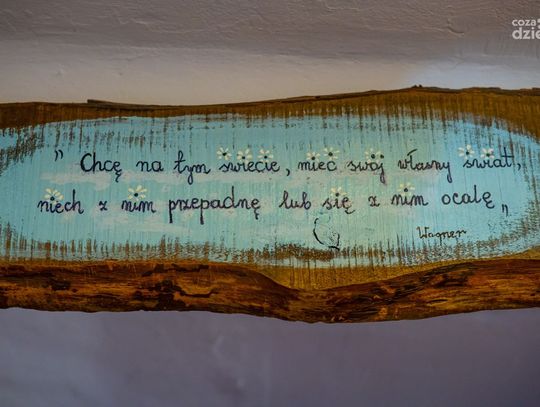 coza
dzie
„Chcę na tym świecie, mieć swój własny świat,
niech z nim przepadnę lub się z nim ocalę„
Wagner